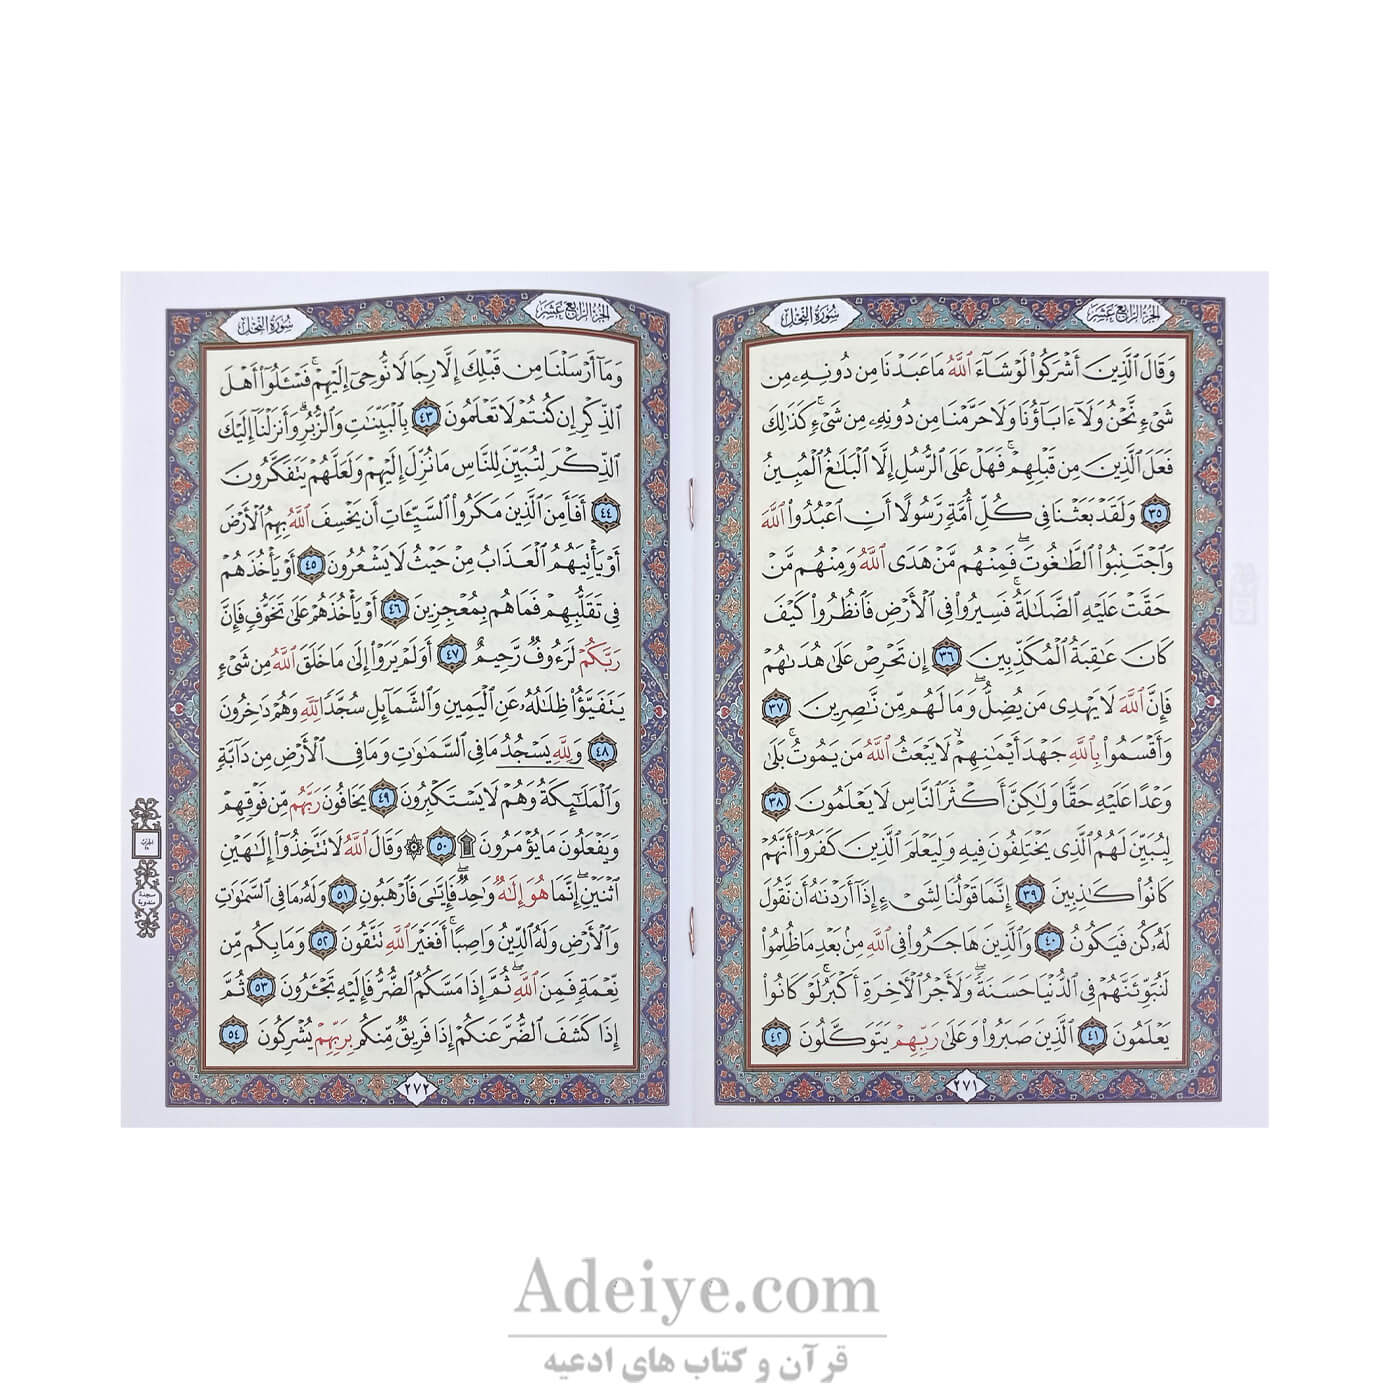 الجزء الرابع عشر
سورة النحل
وَقَالَ ٱلَّذِينَ أَشْرَكُوا۟ لَوْ شَآءَ ٱللَّهُ مَا عَبَدْنَا مِن دُونِهِۦ مِن
شَىْءٍ نَّحْنُ وَلَآ ءَابَآؤُنَا وَلَا حَرَّمْنَا مِن دُونِهِۦ مِن شَىْءٍ ۚ كَذَٰلِكَ
فَعَلَ ٱلَّذِينَ مِن قَبْلِهِمْ ۚ فَهَلْ عَلَى ٱلرُّسُلِ إِلَّا ٱلْبَلَٰغُ ٱلْمُبِينُ
٣٥ وَلَقَدْ بَعَثْنَا فِى كُلِّ أُمَّةٍ رَّسُولًا أَنِ ٱعْبُدُوا۟ ٱللَّهَ
وَٱجْتَنِبُوا۟ ٱلطَّٰغُوتَ ۖ فَمِنْهُم مَّنْ هَدَى ٱللَّهُ وَمِنْهُم مَّنْ
حَقَّتْ عَلَيْهِ ٱلضَّلَٰلَةُ ۚ فَسِيرُوا۟ فِى ٱلْأَرْضِ فَٱنظُرُوا۟ كَيْفَ
كَانَ عَٰقِبَةُ ٱلْمُكَذِّبِينَ ٣٦ إِن تَحْرِصْ عَلَىٰ هُدَىٰهُمْ
فَإِنَّ ٱللَّهَ لَا يَهْدِى مَن يُضِلُّ ۖ وَمَا لَهُم مِّن نَّٰصِرِينَ ٣٧
وَأَقْسَمُوا۟ بِٱللَّهِ جَهْدَ أَيْمَٰنِهِمْ ۙ لَا يَبْعَثُ ٱللَّهُ مَن يَمُوتُ ۚ بَلَىٰ
وَعْدًا عَلَيْهِ حَقًّا وَلَٰكِنَّ أَكْثَرَ ٱلنَّاسِ لَا يَعْلَمُونَ ٣٨
لِيُبَيِّنَ لَهُمُ ٱلَّذِى يَخْتَلِفُونَ فِيهِ وَلِيَعْلَمَ ٱلَّذِينَ كَفَرُوٓا۟ أَنَّهُمْ
كَانُوا۟ كَٰذِبِينَ ٣٩ إِنَّمَا قَوْلُنَا لِشَىْءٍ إِذَآ أَرَدْنَٰهُ أَن نَّقُولَ
لَهُۥ كُن فَيَكُونُ ٤٠ وَٱلَّذِينَ هَاجَرُوا۟ فِى ٱللَّهِ مِنۢ بَعْدِ مَا ظُلِمُوا۟
لَنُبَوِّئَنَّهُمْ فِى ٱلدُّنْيَا حَسَنَةً ۖ وَلَأَجْرُ ٱلْأَخِرَةِ أَكْبَرُ ۚ لَوْ كَانُوا۟
يَعْلَمُونَ ٤١ ٱلَّذِينَ صَبَرُوا۟ وَعَلَىٰ رَبِّهِمْ يَتَوَكَّلُونَ ٤٢
٢٧١
الجزء الرابع عشر
سورة النحل
وَمَآ أَرْسَلْنَا مِن قَبْلِكَ إِلَّا رِجَالًا نُّوحِىٓ إِلَيْهِمْ ۚ فَسْـَٔلُوٓا۟ أَهْلَ
ٱلذِّكْرِ إِن كُنتُمْ لَا تَعْلَمُونَ ٤٣ بِٱلْبَيِّنَٰتِ وَٱلزُّبُرِ ۗ وَأَنزَلْنَآ إِلَيْكَ
ٱلذِّكْرَ لِتُبَيِّنَ لِلنَّاسِ مَا نُزِّلَ إِلَيْهِمْ وَلَعَلَّهُمْ يَتَفَكَّرُونَ
٤٤ أَفَأَمِنَ ٱلَّذِينَ مَكَرُوا۟ ٱلسَّيِّـَٔاتِ أَن يَخْسِفَ ٱللَّهُ بِهِمُ ٱلْأَرْضَ
أَوْ يَأْتِيَهُمُ ٱلْعَذَابُ مِنْ حَيْثُ لَا يَشْعُرُونَ ٤٥ أَوْ يَأْخُذَهُمْ
فِى تَقَلُّبِهِمْ فَمَا هُم بِمُعْجِزِينَ ٤٦ أَوْ يَأْخُذَهُمْ عَلَىٰ تَخَوُّفٍ فَإِنَّ
رَبَّكُمْ لَرَءُوفٌ رَّحِيمٌ ٤٧ أَوَلَمْ يَرَوْا۟ إِلَىٰ مَا خَلَقَ ٱللَّهُ مِن شَىْءٍ
يَتَفَيَّؤُا۟ ظِلَٰلُهُۥ عَنِ ٱلْيَمِينِ وَٱلشَّمَآئِلِ سُجَّدًا لِّلَّهِ وَهُمْ دَٰخِرُونَ
٤٨ وَلِلَّهِ يَسْجُدُ مَا فِى ٱلسَّمَٰوَٰتِ وَمَا فِى ٱلْأَرْضِ مِن دَآبَّةٍ
وَٱلْمَلَٰٓئِكَةُ وَهُمْ لَا يَسْتَكْبِرُونَ ٤٩ يَخَافُونَ رَبَّهُم مِّن فَوْقِهِمْ
وَيَفْعَلُونَ مَا يُؤْمَرُونَ ۩ ٥٠ ۞ وَقَالَ ٱللَّهُ لَا تَتَّخِذُوٓا۟ إِلَٰهَيْنِ
ٱثْنَيْنِ ۖ إِنَّمَا هُوَ إِلَٰهٌ وَٰحِدٌ ۖ فَإِيَّٰىَ فَٱرْهَبُونِ ٥١ وَلَهُۥ مَا فِى ٱلسَّمَٰوَٰتِ
وَٱلْأَرْضِ وَلَهُ ٱلدِّينُ وَاصِبًا ۚ أَفَغَيْرَ ٱللَّهِ تَتَّقُونَ ٥٢ وَمَا بِكُم مِّن
نِّعْمَةٍ فَمِنَ ٱللَّهِ ۖ ثُمَّ إِذَا مَسَّكُمُ ٱلضُّرُّ فَإِلَيْهِ تَجْـَٔرُونَ ٥٣ ثُمَّ
إِذَا كَشَفَ ٱلضُّرَّ عَنكُمْ إِذَا فَرِيقٌ مِّنكُم بِرَبِّهِمْ يُشْرِكُونَ ٥٤
٢٧٢
سجدة
مندوبة
Adeiye.com
قرآن و کتاب های ادعیه